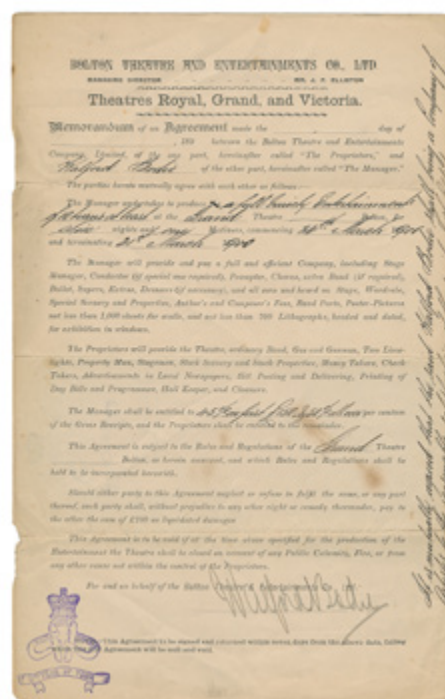 BOLTON THEATRE AND ENTERTAINMENTS CO., LTD
MANAGING DIRECTOR MR. J. F. ELLISTON
Theatres Royal, Grand, and Victoria.
Memorandum of an Agreement made the day of
, 190 between the Bolton Theatre and Entertainments
Company, Limited, of the one part, hereinafter called "The Proprietors," and
Walford Bodie of the other part, hereinafter called "The Manager."
The parties hereto mutually agree with each other as follows:
The Manager undertakes to produce a full variety Entertainment
at the Grand Theatre
nights commencing March
and terminating March
The Manager will provide and pay a full and efficient Company, including Stage
Manager, Conductor (if special one required), Prompter, Chorus, extra Band (if required),
Ballet, Supers, Extras, Dressers (if necessary), and all sets and board on Stage, Wardrobe,
Special Scenery and Properties, Author's and Composer's Fees, Band Parts, Poster-Pictures
not less than 1,000 sheets for walls, and not less than 700 Lithographs, headed and dated,
for exhibition in windows.
The Proprietors will provide the Theatre, ordinary Band, Gas and Gasman, Two Lime-
lights, Property Man, Stagemen, Stock Scenery and Stock Properties, Money Takers, Check
Takers, Advertisements in Local Newspapers, Bill Posting and Delivering, Printing of
Day Bills and Programmes, Hall Keeper, and Cleaners.
The Manager shall be entitled to per centum
of the Gross Receipts, and the Proprietors shall be entitled to the remainder.
This Agreement is subject to the Rules and Regulations of the Grand Theatre
Bolton, as herein annexed, and which Rules and Regulations shall be
held to be incorporated herewith.
Should either party to this Agreement neglect or refuse to fulfil the same, or any part
thereof, such party shall, without prejudice to any other right or remedy thereunder, pay to
the other the sum of £100 as liquidated damages
This Agreement is to be void if at the time above specified for the production of the
Entertainment the Theatre shall be closed on account of any Public Calamity, Fire, or from
any other cause not within the control of the Proprietors.
For and on behalf of the Bolton Theatre
Walford Bodie
This Agreement to be signed and returned within seven days from the above date, failing
which this Agreement will be null and void.
It is mutually agreed that the said Walford Bodie shall